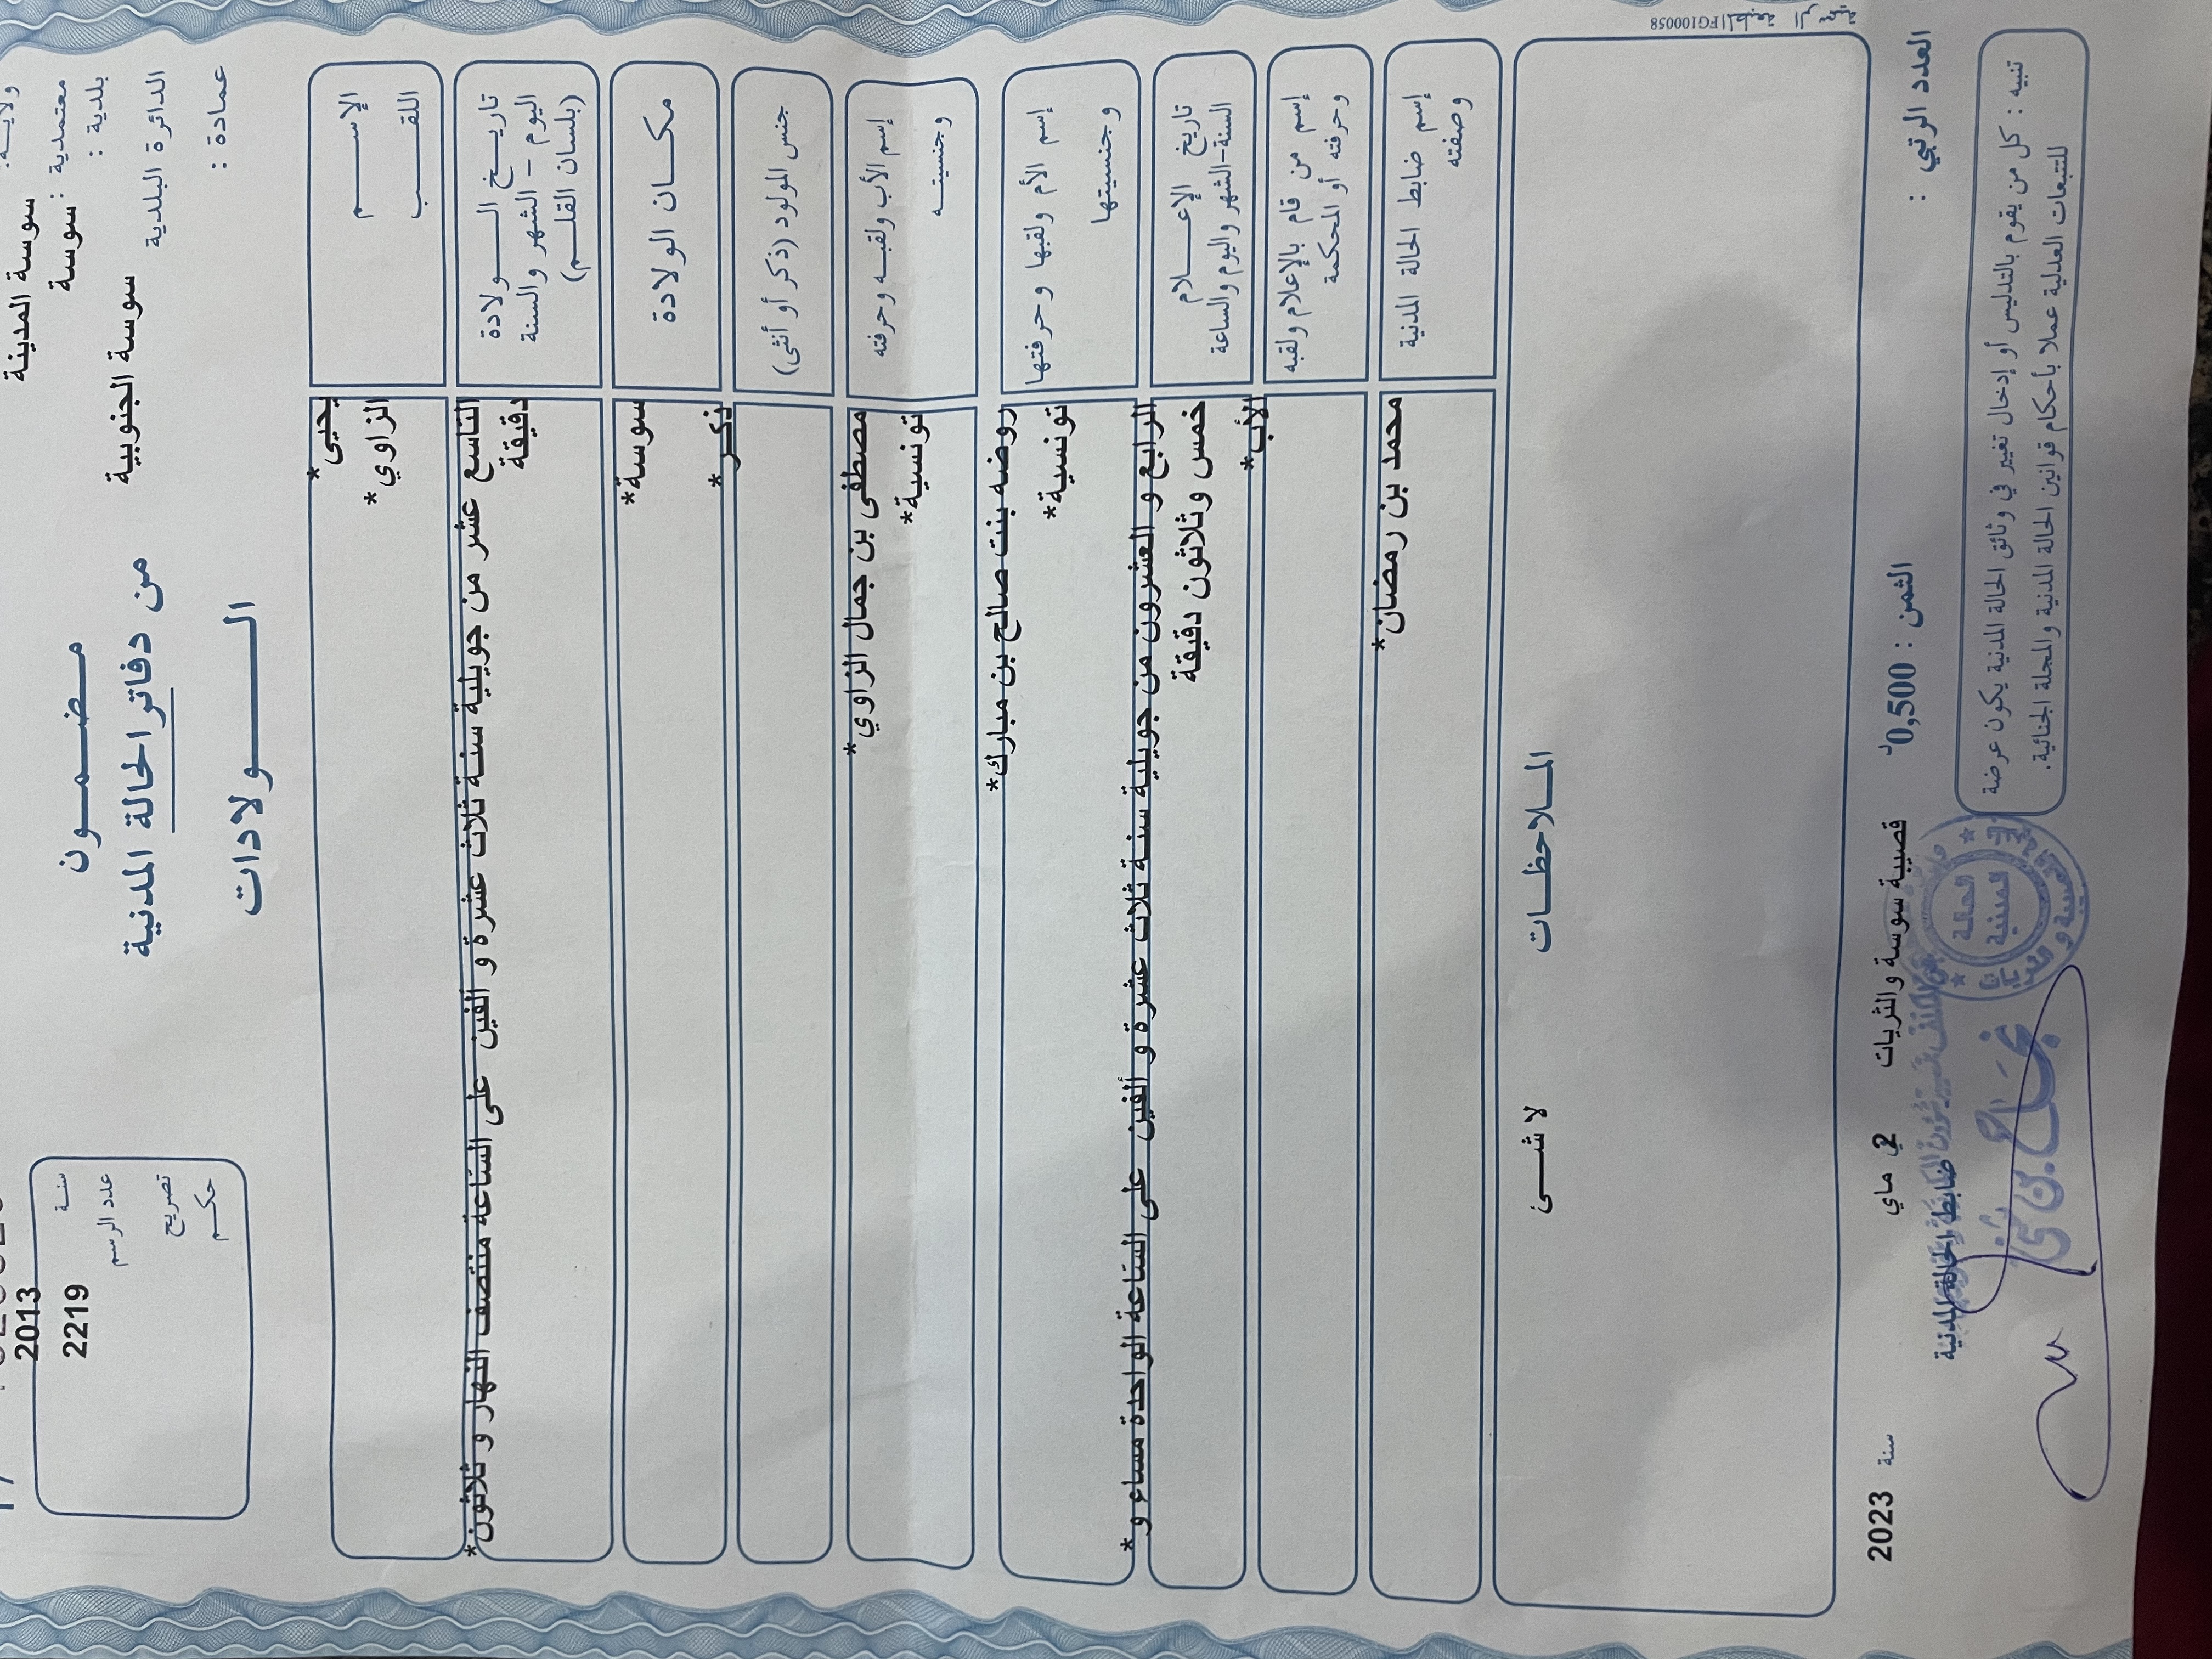 ولايـــة :
سوسة المدينة
معتمدية : سوسة
بلدية :
الدائرة البلدية سوسة الجنوبية
عمادة :
مـضـمـــون
من دفاتر الحالة المدنية
الـــــولادات
2013 سنـــة
2219 عدد الرسم
تصريح
حكـــم
الإســــــم يحيى*
اللقــــب الزاوي*
تاريـــخ الـــــولادة التاسع عشر من جويلية سنة ثلاث عشرة و ألفين على الساعة منتصف النهار و ثلاثون*
اليوم – الشهر والسنة دقيقة
(بلسان القلـــم)
مكـــان الولادة سوسة*
جنس المولود (ذكر أو أنثى) ذكر*
إسم الأب ولقبـه وحرفته مصطفى بن جمال الزاوي*
وجنسيتـــه تونسية*
إسم الأم ولقبها وحرفتها روضه بنت صالح بن مبارك*
وجنسيتها تونسية*
تاريخ الإعـــــلام الرابع و العشرون من جويلية سنة ثلاث عشرة و ألفين على الساعة الواحدة مساء و*
السنة-الشهر واليوم والساعة خمس وثلاثون دقيقة
إسم من قام بالإعلام ولقبه الأب*
وحرفته أو المحكمة
إسم ضابط الحالة المدنية محمد بن رمضان*
وصفته
المـــلاحظـــات
لا شــــئ
المطبعة الرسمية FG100058
قصيبة سوسة والثريات في 2 ماي سنة 2023
العدد الرتبي : الثمن : 0,500د
ضابط الحالة المدنية
الحالة
المدنية
تنبيه : كل من يقوم بالتدليس أو إدخال تغيير في وثائق الحالة المدنية يكون عرضة
للتتبعات العدلية عملا بأحكام قوانين الحالة المدنية والمجلة الجنائية.